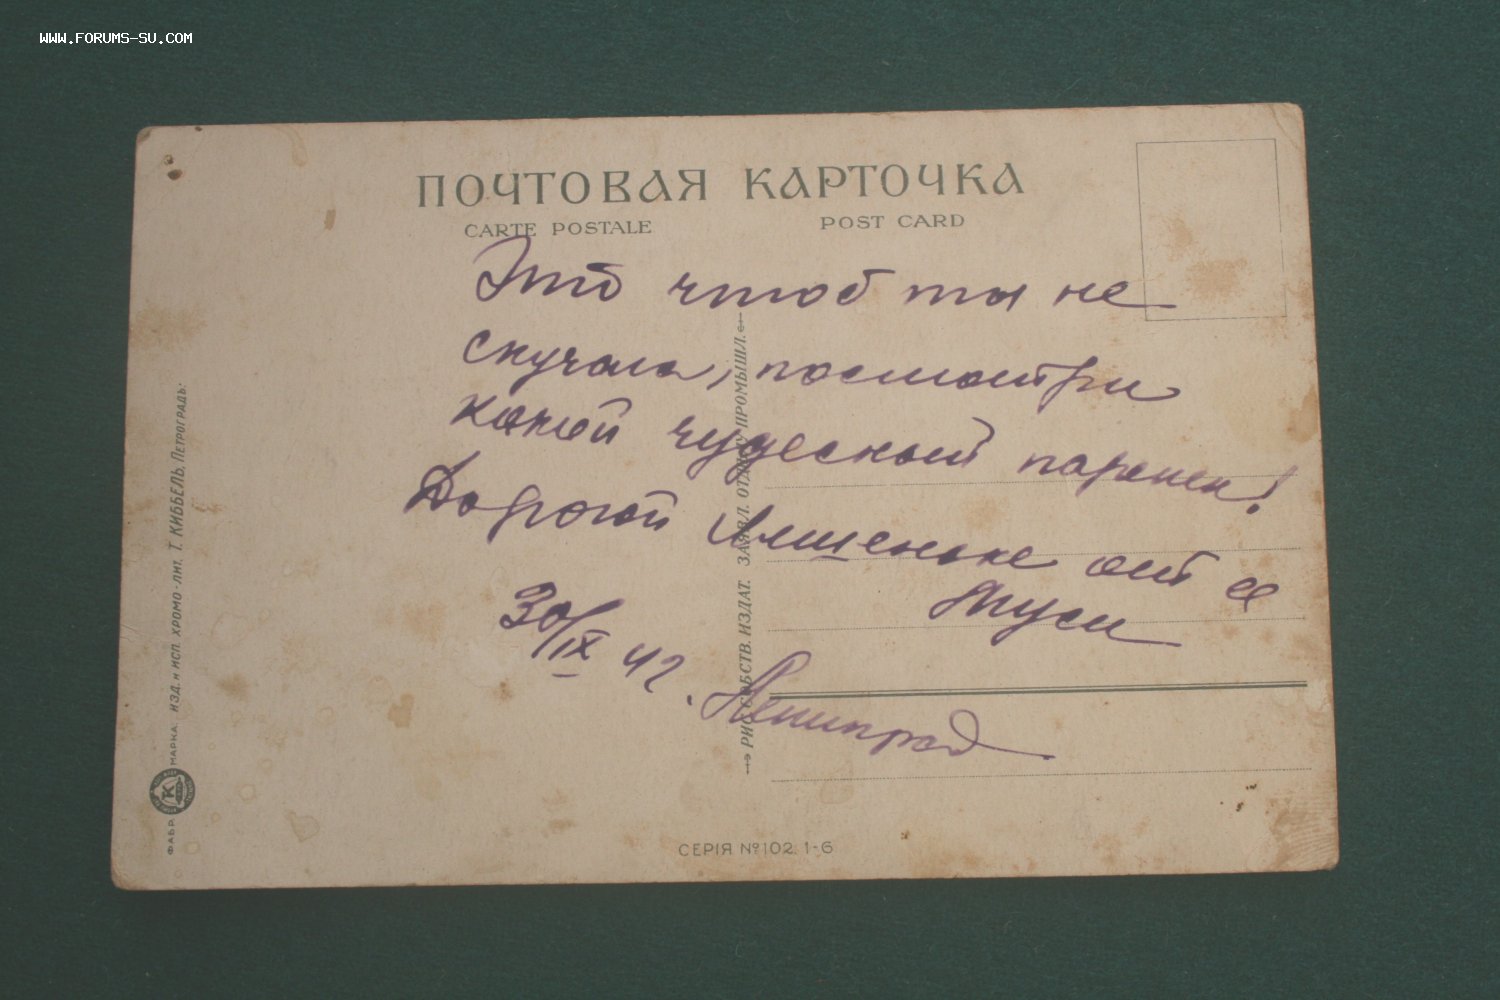 WWW.FORUMS-SU.COM
ПОЧТОВАЯ КАРТОЧКА
CARTE POSTALE POST CARD
Это чтоб ты не
скучала, посмотри
какой чудесный паренек!
Дорогой от ее
Муси
30/IX 42. Ленинград
РИС. СОБСТВ. ИЗДАТ. ЗАЯВЛ. ОТДѢЛУ ПРОМЫШЛ.
ФАБР. МАРКА. ИЗД. и ИСП. ХРОМО-ЛИТ. Т. КИББЕЛЬ, ПЕТРОГРАДЪ.
К
СЕРІЯ №102. 1-6